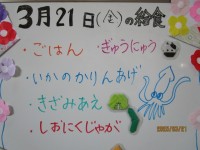 3月21日(金)の給食
・ごはん ・ぎゅうにゅう
・いかのかりんあげ
・きざみあえ
・しおにくじゃが